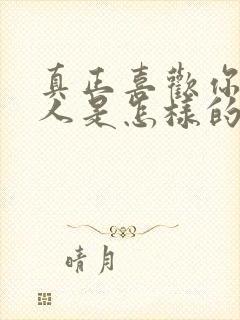 真正喜歡你
人是怎樣的
晴月